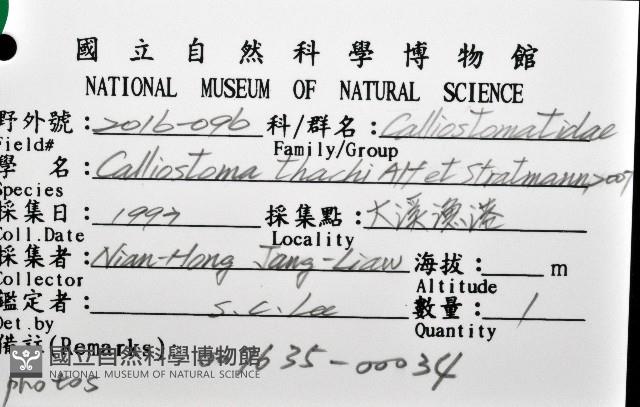 國立自然科學博物館
NATIONAL MUSEUM OF NATURAL SCIENCE
野外號:2016-096 科/群名:Calliostomatidae
Field# Family/Group
學 名:Calliostoma thachi Alf et Stratmann, 2007
Species
採集日:1997 採集點:大溪漁港
Coll.Date Locality
採集者:Nian-Hong Jang-Liaw 海拔: m
Collector Altitude
鑑定者: S.C.Lee 數量: 1
Det.by Quantity
備註(Remarks) 35-00034
國立自然科學博物館
NATIONAL MUSEUM OF NATURAL SCIENCE
photos